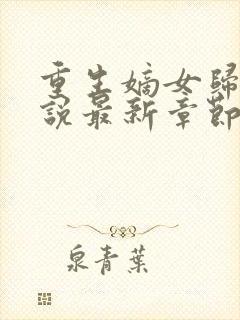 重生嫡女歸
說最新章節
泉青葉